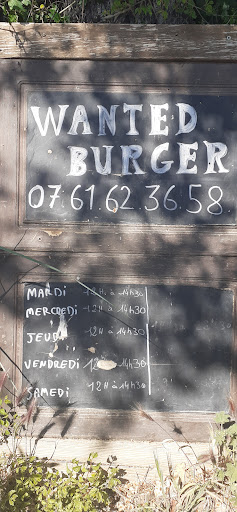 WANTED
BURGER
07.61.62.36.58
MARDI 12H à 14H30
MERCREDI 12H à 14H30
JEUDI 12H à 14H30
VENDREDI 12H à 14H30
SAMEDI 12H à 14H30